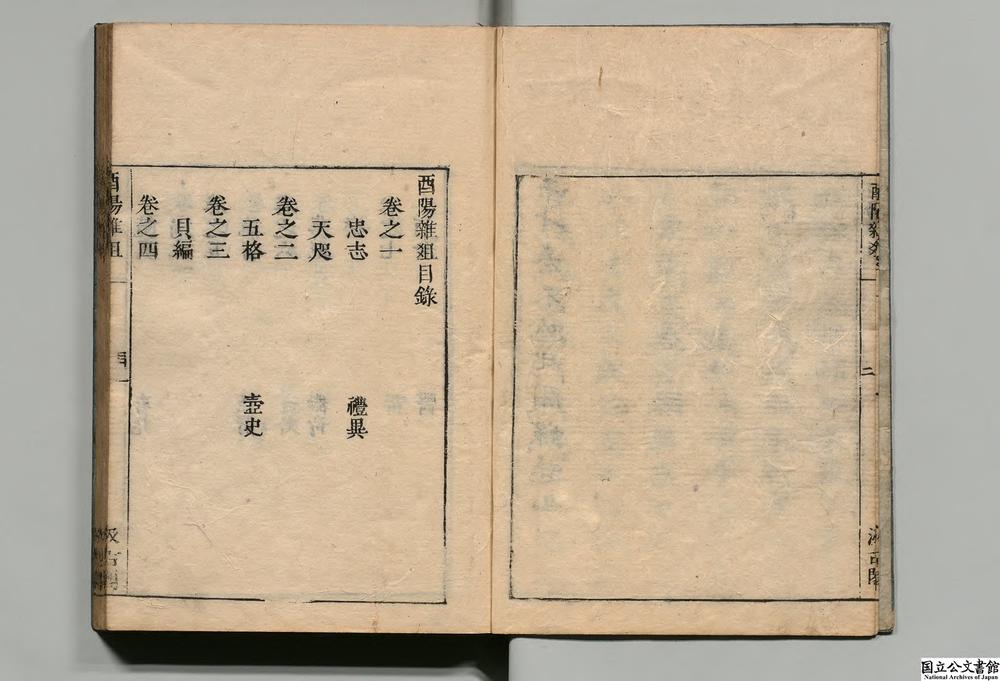 酉陽雜俎
二
汲古閣
酉陽雜俎目錄
卷之一
忠志 禮異
天咫
卷之二
五格 壺史
卷之三
貝編
卷之四
酉陽雜俎
汲古閣
国立公文書館
National Archives of Japan